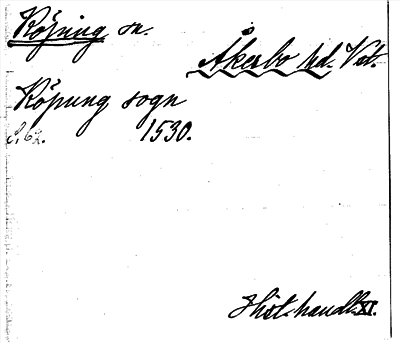 Köping sn.
Åkerbo hd. Vstm.
Köpung sogn
S. 62. 1530.
Hist. handl. XI.